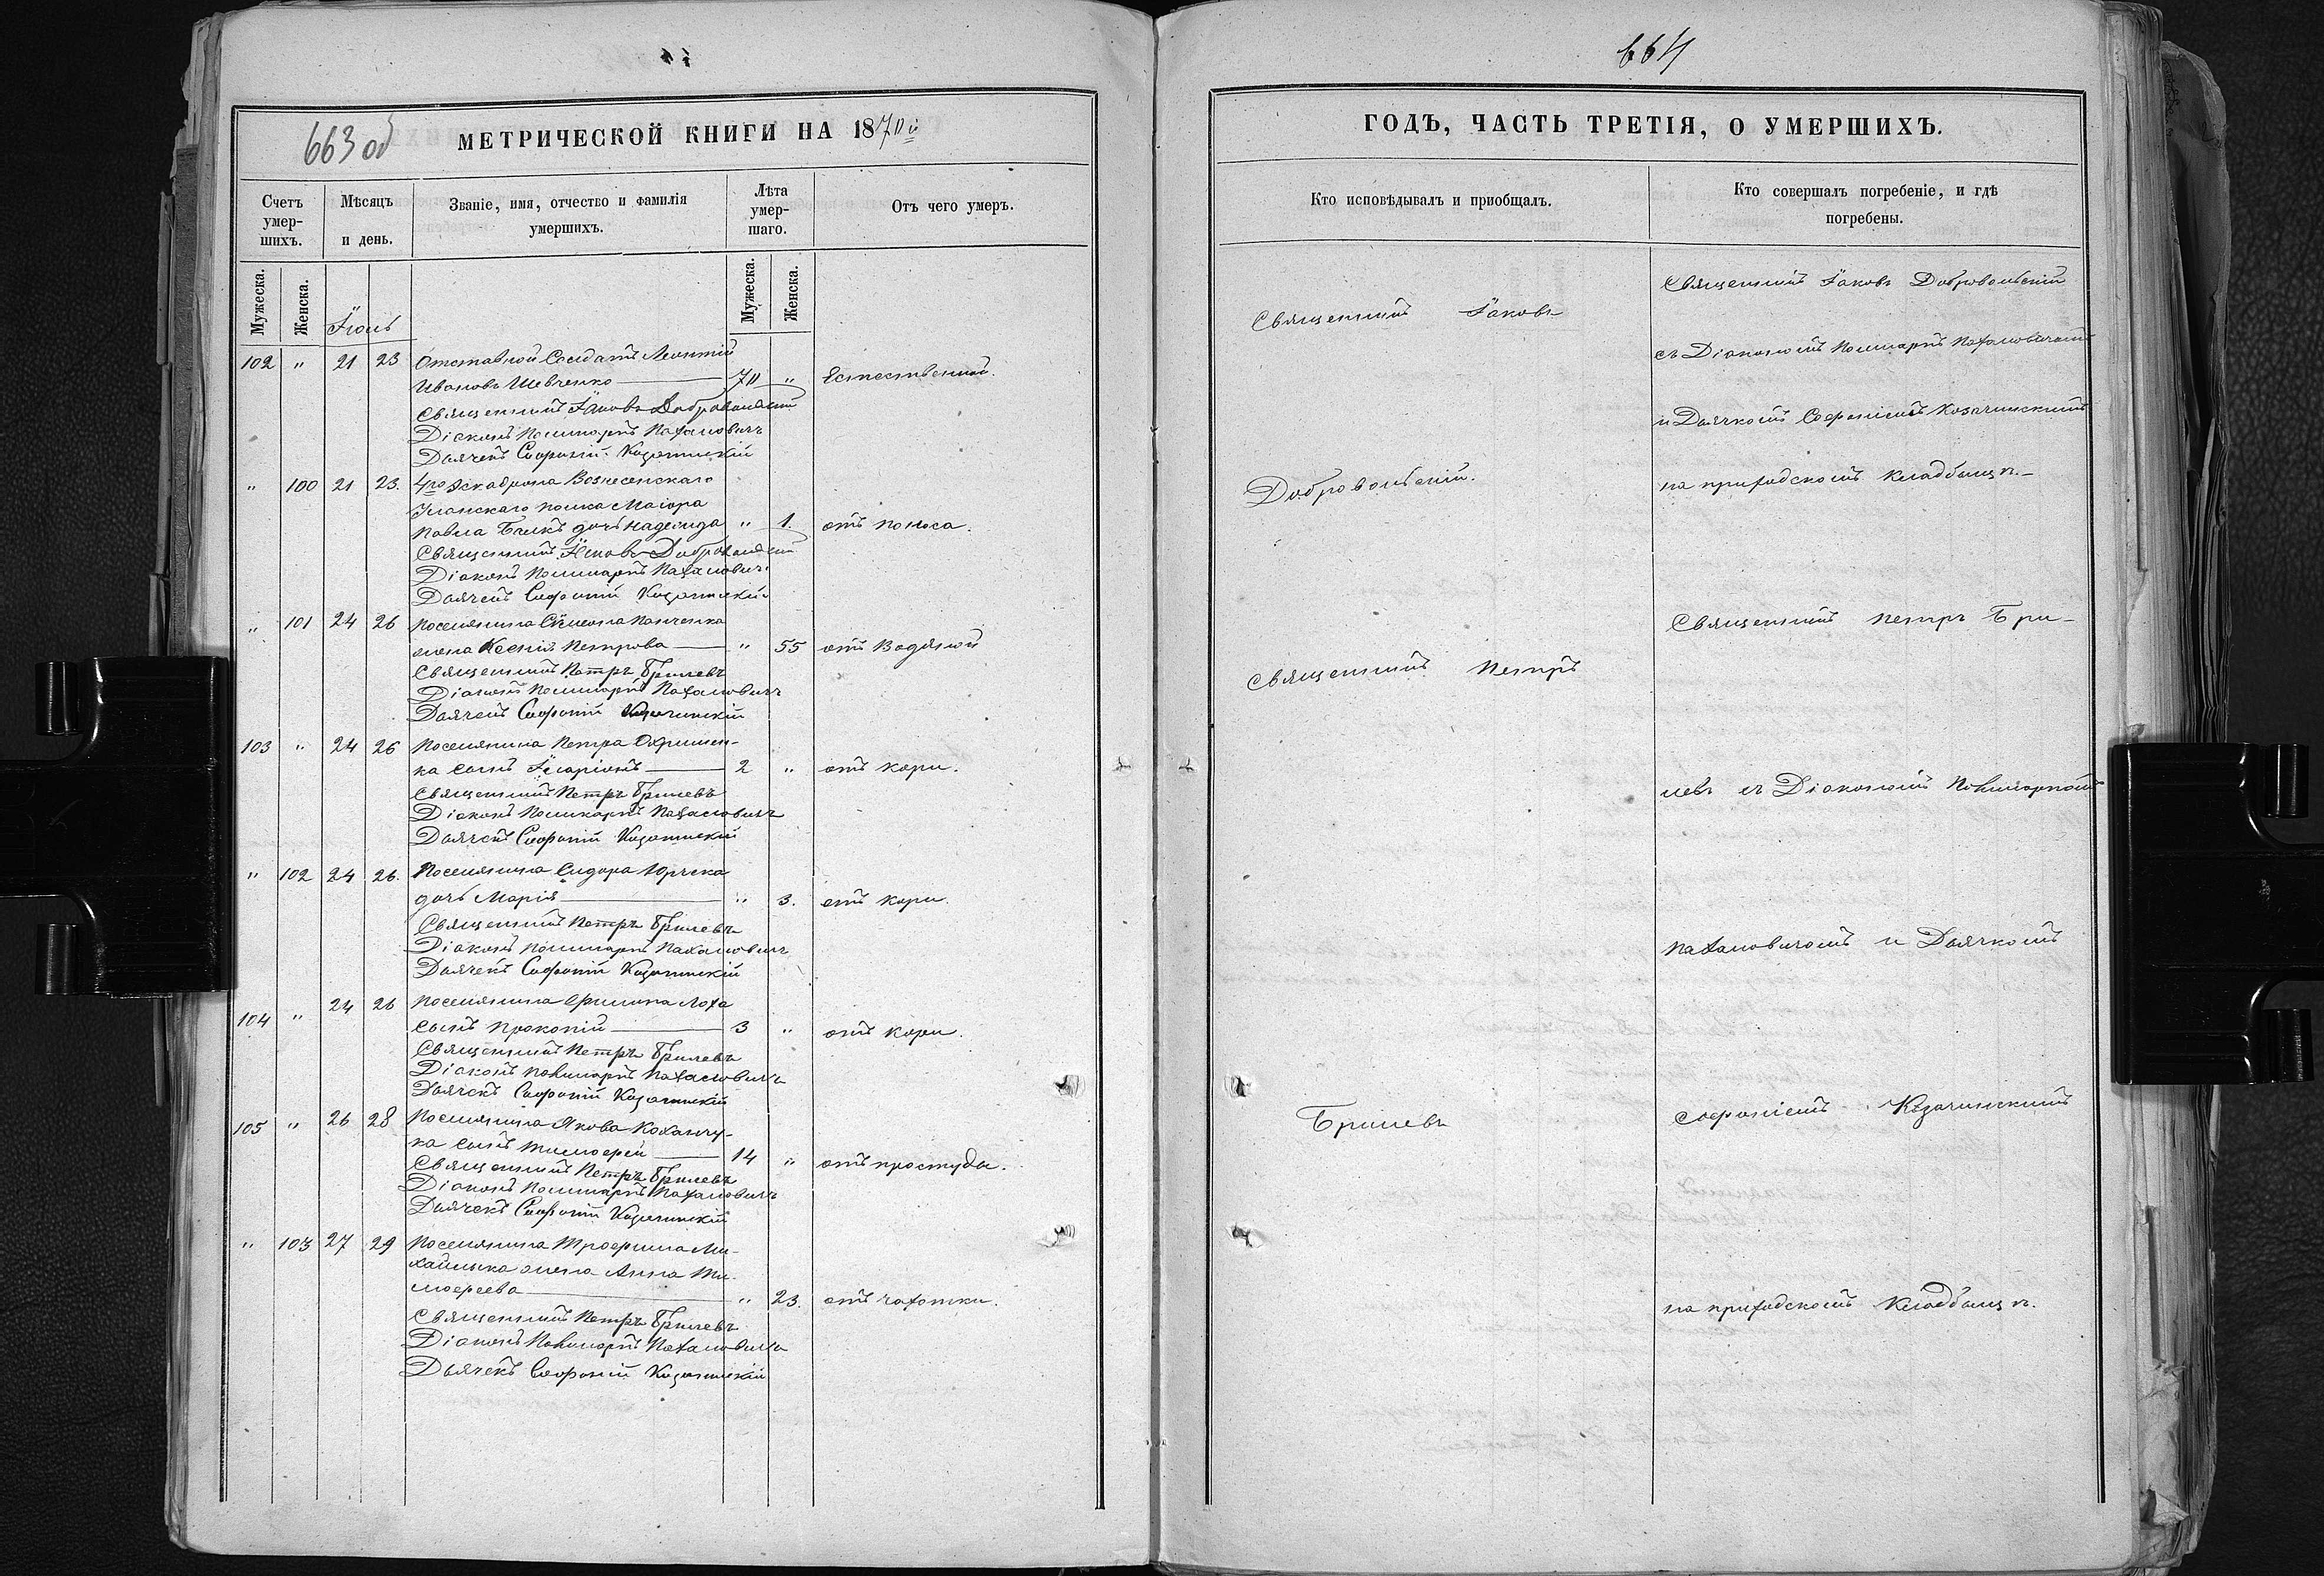 663 об
МЕТРИЧЕСКОЙ КНИГИ НА 1870й
Счетъ умер-шихъ.
Мѣсяцъ и день.
Званіе, имя, отчество и фамилія умершихъ.
Лѣта умер-шаго.
Отъ чего умеръ.
Мужеска.
Женска.
Мужеска.
Женска.
Іюль
102 " 21 23 Отставной Солдатъ Леонтій
Ивановъ Шевченко 70 " Естественной.
Священникъ Іаковъ Добровольскій
Діаконъ Поликарпъ Пахаловичъ
Дьячекъ Софроній Козачинскій
" 100 21 23. 4го Эскадрона Вознесенскаго
Уланскаго полка Маіора
Павла Бѣликъ дочь Надежда " 1. отъ поноса.
Священникъ Іаковъ Добровольскій
Діаконъ Поликарпъ Пахаловичъ
Дьячекъ Софроній Козачинскій
" 101 24 26 Поселянина Сѵмеона Панченка
жена Ксенія Петрова " 55 отъ Водяной
Священникъ Петръ Брилевъ
Діаконъ Поликарпъ Пахаловичъ
Дьячекъ Софроній Козачинскій
103 " 24 26 Поселянина Петра Охримен-
ка сынъ Іларіонъ 2 " отъ кори.
Священникъ Петръ Брилевъ
Діаконъ Поликарпъ Пахаловичъ
Дьячекъ Софроній Козачинскій
" 102 24 26. Поселянина Сидора Юрчка
дочь Марія " 3. отъ кори.
Священникъ Петръ Брилевъ
Діаконъ Поликарпъ Пахаловичъ
Дьячекъ Софроній Козачинскій
104 " 24 26 Поселянина Филипа Лоха
сынъ Прокопій 3 " отъ кори.
Священникъ Петръ Брилевъ
Діаконъ Поликарпъ Пахаловичъ
Дьячекъ Софроній Козачинскій
105 " 26 28 Поселянина Якова Коханчу-
ка сынъ Тимофей 14 " отъ простуды.
Священникъ Петръ Брилевъ
Діаконъ Поликарпъ Пахаловичъ
Дьячекъ Софроній Козачинскій
" 103 27 29 Поселянина Трофима Ми-
хайлика жена Анна Ти-
мофеева " 23. отъ чахотки.
Священникъ Петръ Брилевъ
Діаконъ Поликарпъ Пахаловичъ
Дьячекъ Софроній Козачинскій
664
ГОДЪ, ЧАСТЬ ТРЕТІЯ, О УМЕРШИХЪ.
Кто исповѣдывалъ и приобщалъ.
Кто совершалъ погребеніе, и гдѣ погребены.
Священникъ Іаковъ
Добровольскій.
Священникъ Петръ
Брилевъ
Священникъ Іаковъ Добровольскій
съ Діакономъ Поликарпъ Пахаловичемъ
и Дьячкомъ Софроніемъ Козачинскимъ
на приходскомъ кладбищѣ.
Священникъ Петръ Бри-
левъ съ Діакономъ Поликарпомъ
Пахаловичомъ и Дьячкомъ
Софроніемъ Козачинскимъ
на приходскомъ кладбищѣ.